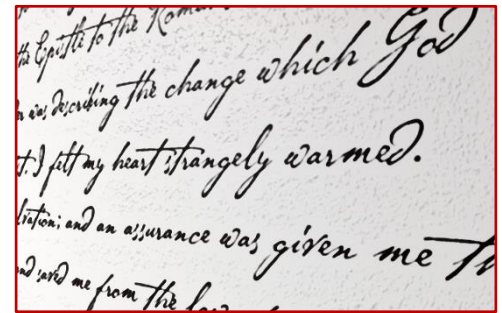 the Epistle to the Roma
was describing the change which God
I felt my heart strangely warmed.
and an assurance was given me
saved me from the law